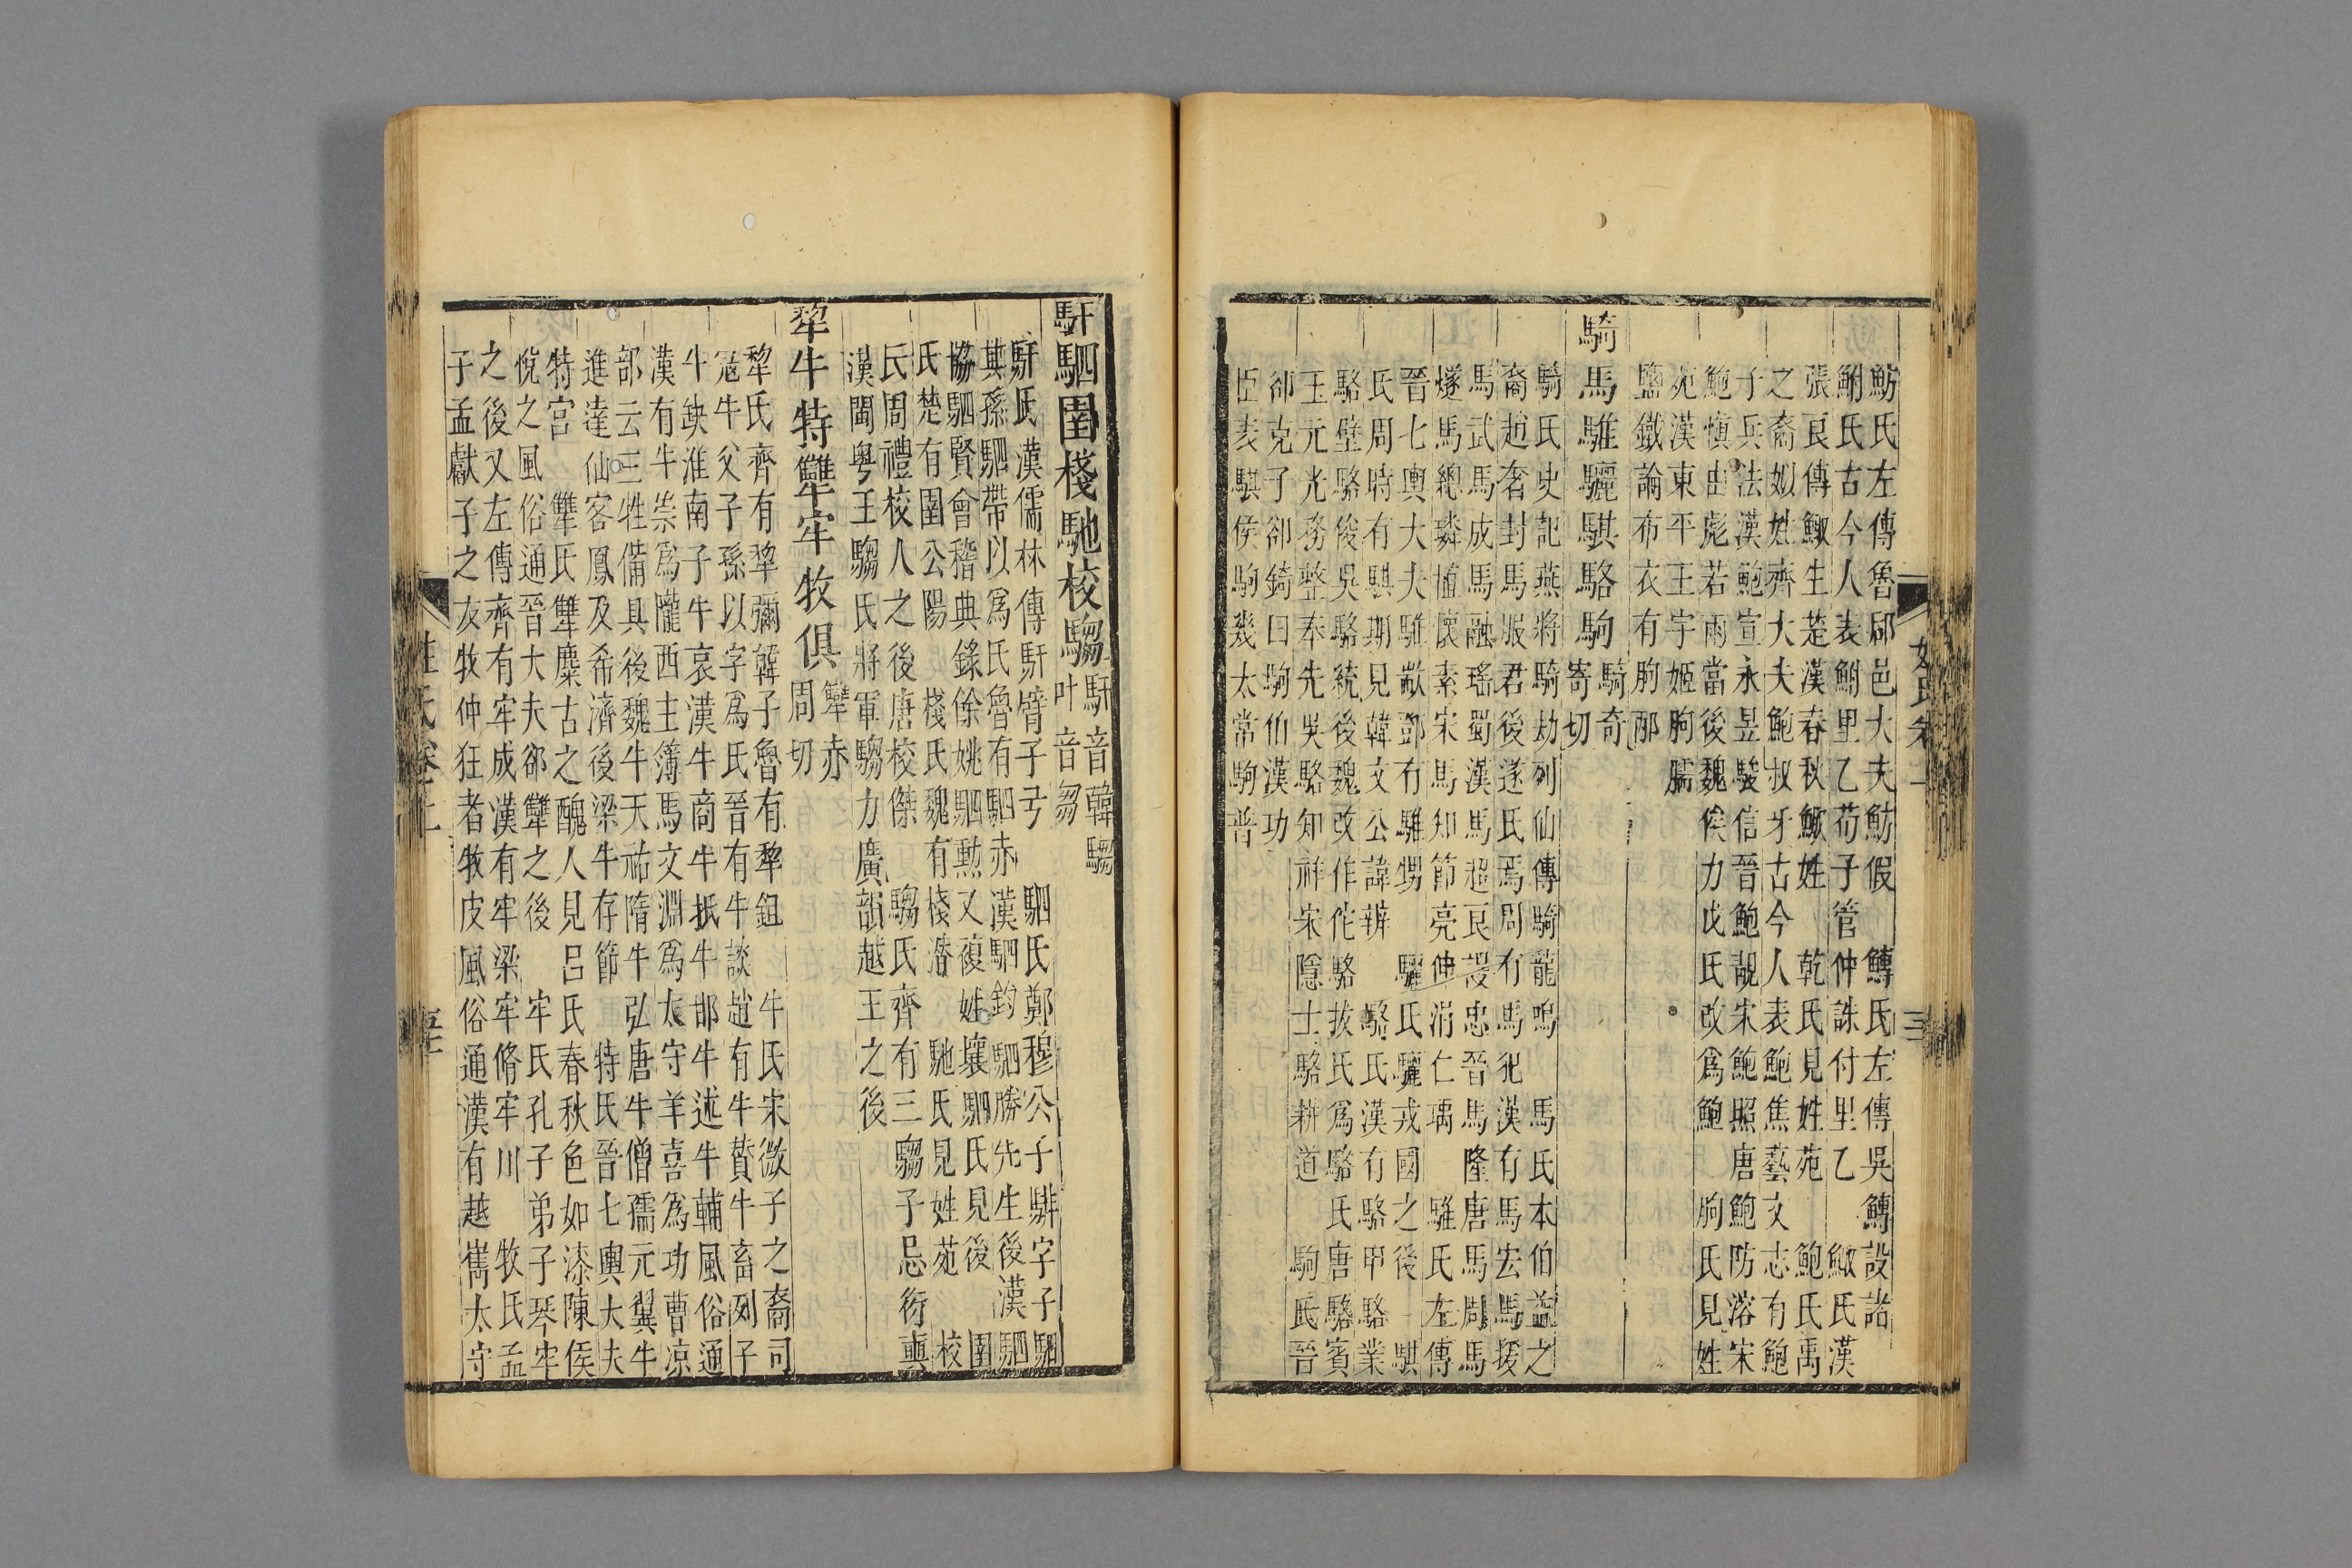 魴氏左傳魯郈邑大夫魴假　鱄氏左傳吳鱄設諸
鮒氏古今人表鮒里乙荀子管仲誅付里乙　鯫氏漢
張良傳鯫生楚漢春秋鯫姓　乾氏見姓苑　鮑氏禹
之裔姒姓齊大夫鮑叔牙古今人表鮑焦藝文志有鮑
子兵法漢鮑宣永昱駿信晉鮑靚宋鮑照唐鮑防溶宋
鮑愼由彪若雨當後魏俟力伐氏改爲鮑　朐氏見姓
苑漢東平王宇姬朐臑
鹽鐵論布衣有朐邴
騎馬騅驪騏駱駒騎奇
寄切
騎氏史記燕將騎劫列仙傳騎龍鳴　馬氏本伯益之
裔趙奢封馬服君後遂氏焉周有馬犯漢有馬宏馬援
馬武馬成馬融瑤蜀漢馬馬超良謖忠晉馬隆唐馬周馬
燧馬總璘植懷素宋馬知節亮伸涓仁瑀　騅氏左傳
晉七輿大夫騅歂鄧有騅甥　驪氏驪戎國之後　騏
氏周時有騏期見韓文公諱辨　駱氏漢有駱甲駱業
駱壁駱俊吳駱統後魏改作佗駱拔氏爲駱氏唐駱賓
王元光務整奉先吳駱知祥宋隱士駱耕道　駒氏晉
郤克子郤錡曰駒伯漢功
臣表騏侯駒幾太常駒普
馯駟圉棧馳校騶馯音韓騶
叶音芻
馯氏漢儒林傳馯臂子弓　駟氏鄭穆公子騑字子駟
其孫駟帶以爲氏魯有駟赤漢駟鈞駟勝先生後漢駟
協駟賢會稽典錄餘姚駟勲又複姓壤駟氏見後　圉
氏楚有圉公陽　棧氏魏有棧潛　馳氏見姓苑　校
氏周禮校人之後唐校傑　騶氏齊有三騶子忌衍奭
漢閩粤王騶氏將軍騶力廣韻越王之後
犂牛特犨牢牧俱犨赤
周切
犂氏齊有犂彌韓子魯有犂鉏　牛氏宋微子之裔司
寇牛父子孫以字爲氏晉有牛談趙有牛贊牛畜列子
牛缺淮南子牛哀漢牛商牛抵牛邯牛述牛輔風俗通
漢有牛崇爲隴西主簿馬文淵爲太守羊喜爲功曹涼
部云三牲備具後魏牛天祐隋牛弘唐牛僧孺元翼牛
進達仙客鳳及希濟後梁牛存節　特氏晉七輿大夫
特宮　犨氏犨麋古之醜人見呂氏春秋色如漆陳侯
悅之風俗通晉大夫郤犨之後　牢氏孔子弟子琴牢
之後又左傳齊有牢成漢有牢梁牢脩牢川　牧氏孟
子孟獻子之友牧仲狂者牧皮風俗通漢有越嶲太守